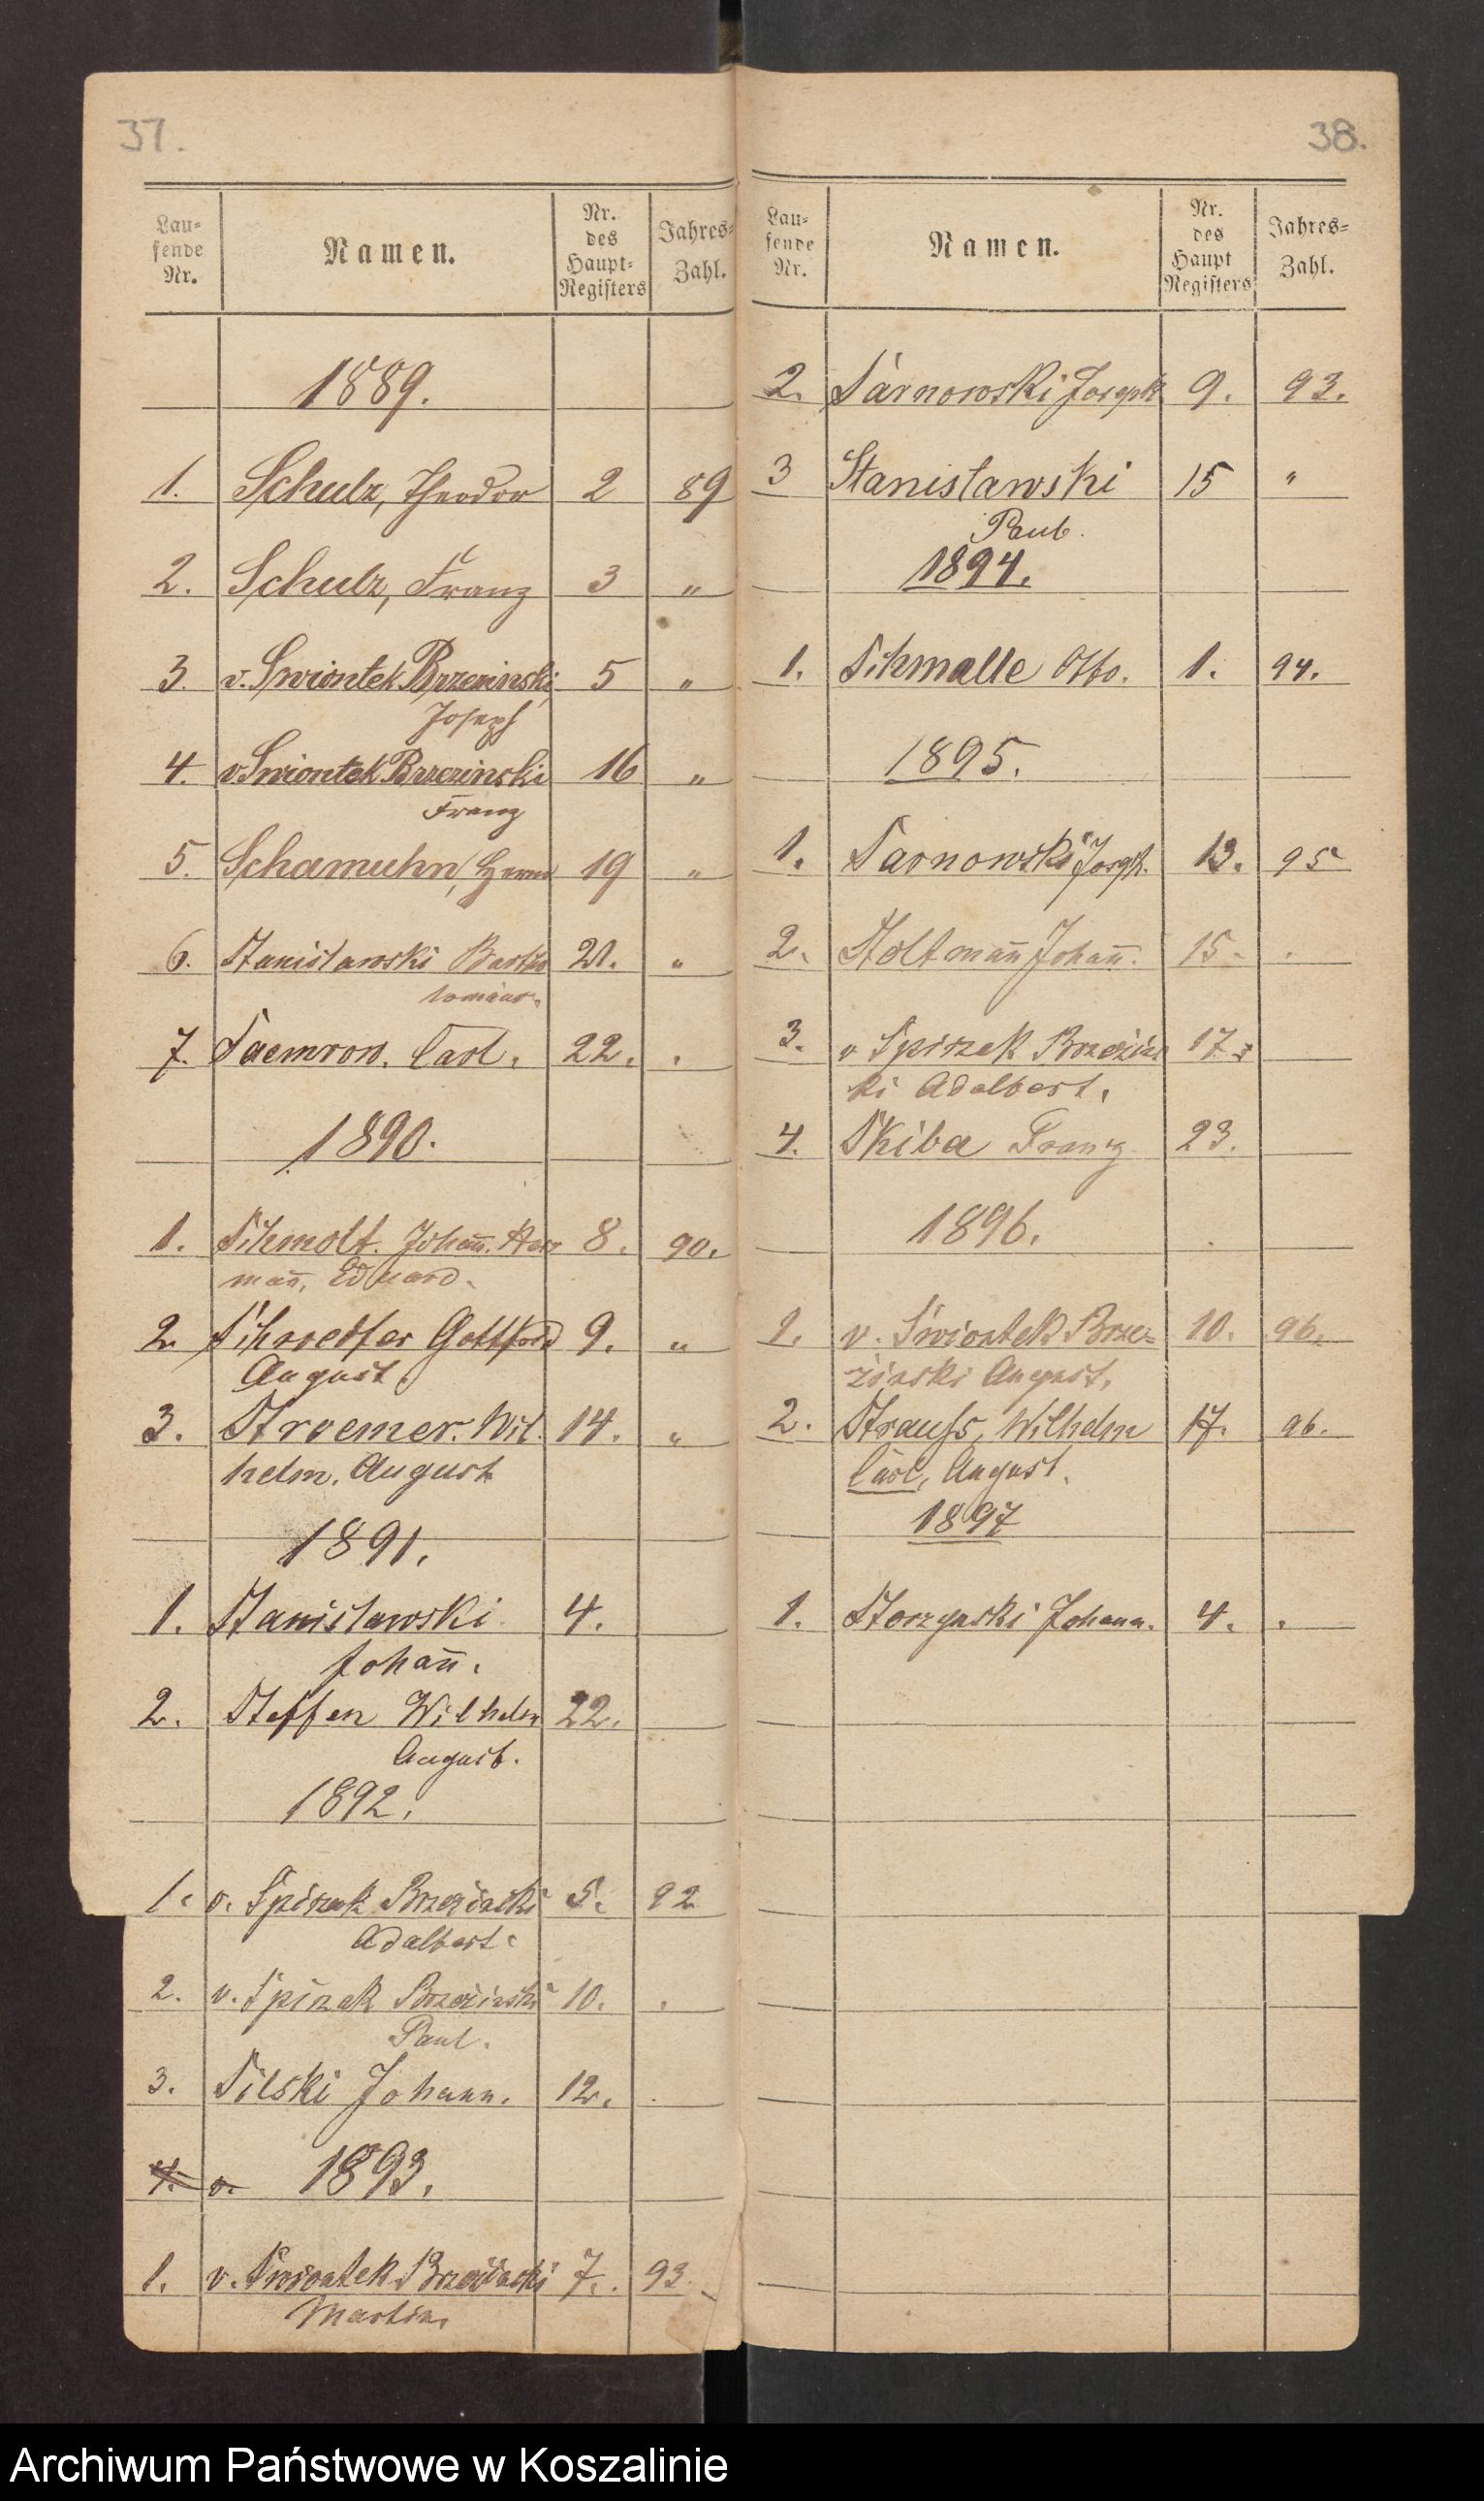 37.
Lau-
fende
Nr.
Namen.
Nr.
des
Haupt-
Registers
Jahres-
Zahl.
1889.
1. Schulz, Theodor 2 89
2. Schulz, Franz 3 "
3. v. Swiontek Brzezinski, 5 "
Joseph
4. v. Swiontek Brzezinski 16 "
Franz
5. Schamuhn, Herm 19 "
6. Stanislawski Bartho 21. "
lomäus.
7. Saemrow. Carl. 22. "
1890.
1. Schmolt. Johan̄. Her 8. 90.
man̄, Eduard.
2. Schroedter Gottfried 9. "
August
3. Stroemer. Wil. 14. "
helm. August
1891.
1. Stanislawski 4.
Johan̄.
2. Steffen Wilhelm 22.
August.
1892.
1. v. Spizak Brzezinski 5. 92
Adalbert.
2. v. Spizak Brzezinski 10. .
Paul.
3. Silski Johann. 12. .
4. v. 1893.
1. v. Swiontek Brzezinski 7. 93.
Martin.
38.
Lau-
fende
Nr.
Namen.
Nr.
des
Haupt
Registers
Jahres-
Zahl.
2. Sarnowski Joseph 9. 93.
3 Stanislawski 15 "
Paul.
1894.
1. Schmalle Otto. 1. 94.
1895.
1. Sarnowski Joseph. 13. 95
2. Stoltman̄ Johan̄. 15. .
3. v Spizak Brzezins 17.
ki Adalbert.
4. Skiba Franz 23.
1896.
1. v. Swiontek Brze- 10. 96.
zinski August.
2. Strauß, Wilhelm 17. 96.
Carl, August.
1897
1. Storzynski Johann. 4. .
Archiwum Państwowe w Koszalinie